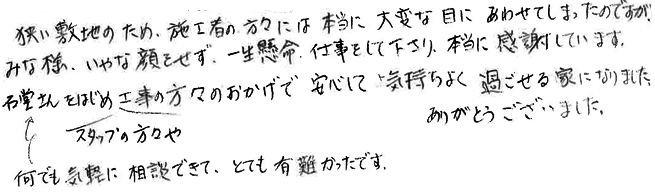 狭い敷地のため、施工者の方々には本当に大変な目にあわせてしまったのですが、
みな様、いやな顔をせず、一生懸命、仕事をして下さり、本当に感謝しています。
石堂さんをはじめ工事の方々のおかげで安心して気持ちよく過ごせる家になりました。
スタッフの方々や
ありがとうございました。
何でも気軽に相談できて、とても有難かったです。